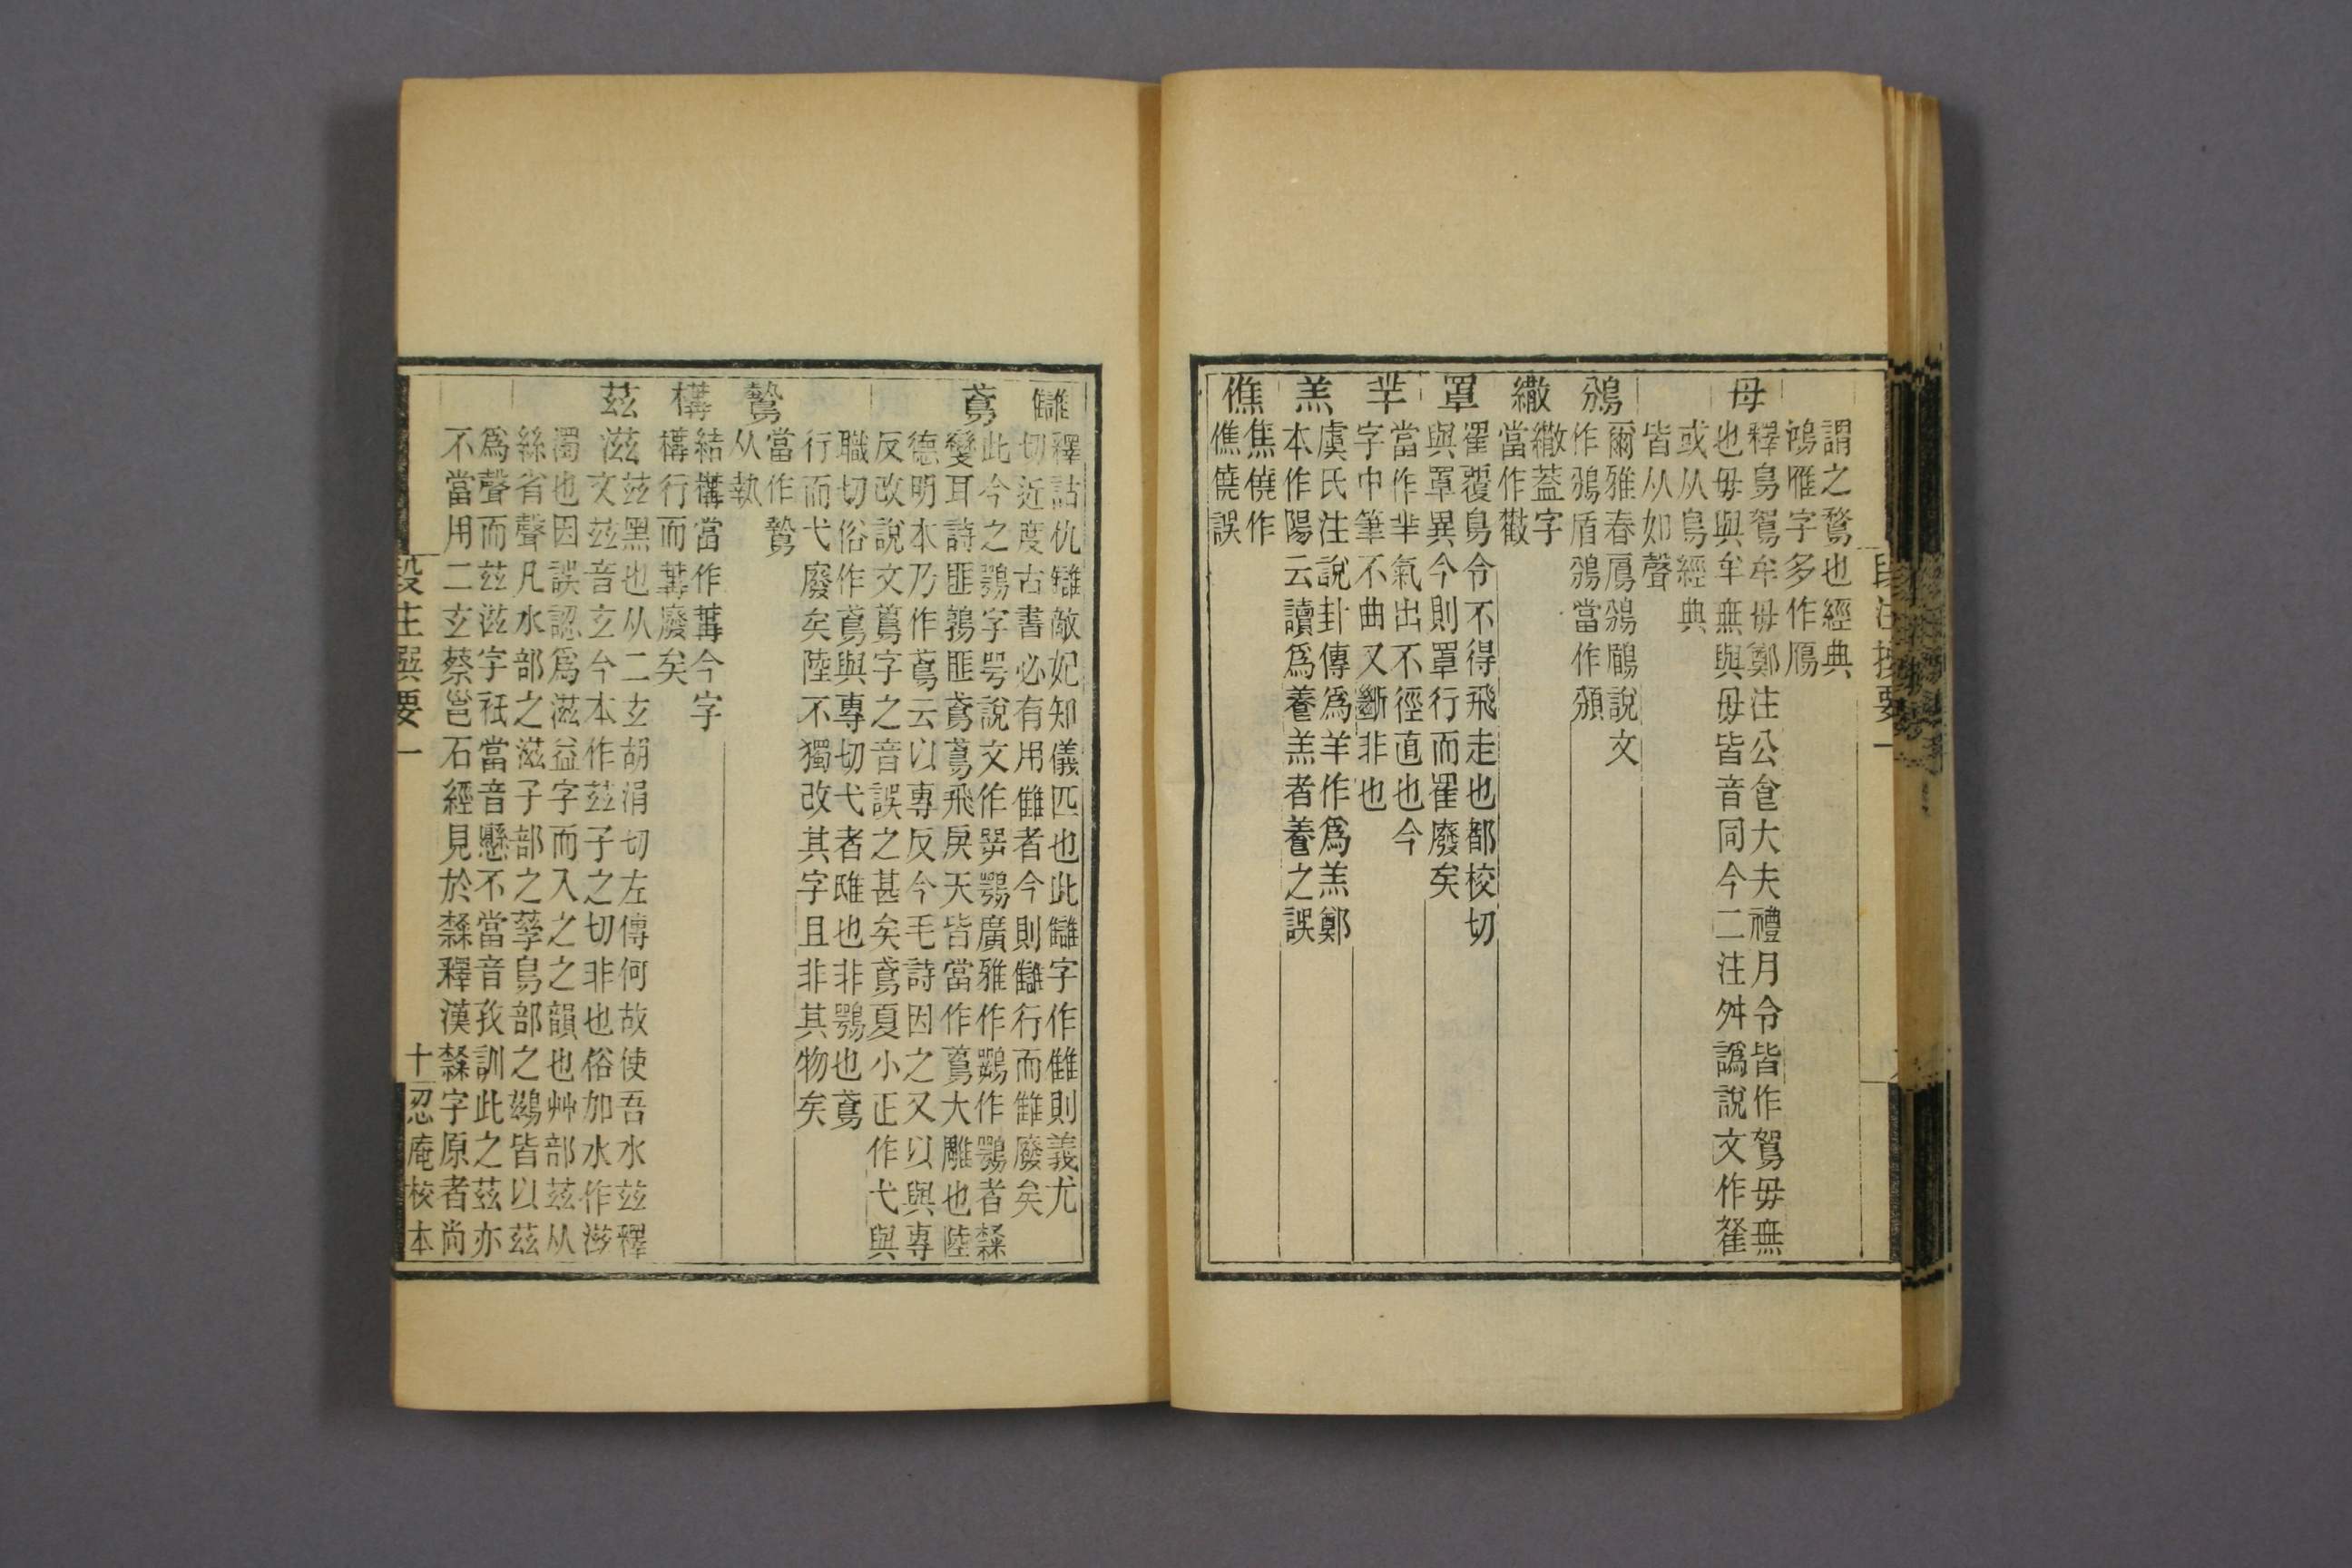 段注撰要一
謂之鶩也經典
鴻雁字多作鴈
母
釋鳥鴽牟母鄭注公食大夫禮月令皆作鴽毋無
也毋與牟無與毋皆音同今二注舛譌說文作
或从鳥經典
皆从如聲
鳻
爾雅春鳸鳻鶞說文
作鳻盾鳻當作頒
繖
繖蓋字
當作㪔
罩
䍜覆鳥令不得飛走也都校切
與罩異今則罩行而䍜廢矣
羋
當作羋氣出不徑直也今
字中筆不曲又斷非也
羔
虞氏注說卦傳爲羊作爲羔鄭
本作陽云讀爲養羔者養之誤
僬
焦僥作
僬僥誤
讎
釋詁仇讎敵妃知儀匹也此讎字作雔則義尤
切近度古書必有用雔者今則讎行而雔廢矣
鳶
此今之鶚字咢說文作㖾鶚廣雅作鸚作鶚者𣜩
變耳詩匪鶉匪鳶鳶飛戾天皆當作䳒大雕也陸
德明本乃作鳶云以專反今毛詩因之又以與專
反改說文䳒字之音誤之甚矣鳶夏小正作弋與
職切俗作鳶與專切弋者䧳也非鶚也鳶
行而弋廢矣陸不獨改其字且非其物矣
鷙
當作鷙
从執
構
結構當作冓今字
構行而冓廢矣
茲 滋
玆黑也从二玄胡涓切左傳何故使吾水玆釋
文玆音玄今本作茲子之切非也俗加水作滋
濁也因誤認爲滋益字而入之之韻也艸部茲从
絲省聲凡水部之滋子部之孳鳥部之鷀皆以茲
爲聲而玆滋字祇當音懸不當音孜訓此之茲亦
不當用二玄蔡邕石經見於𣜩釋漢𣜩字原者尚
段注撰要一
十
忍庵校本